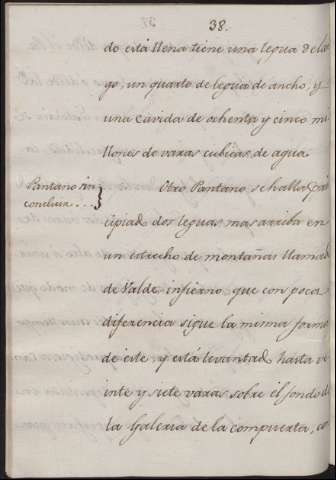 38.
de está llena tiene una legua de lar
go, un quarto de legua de ancho, y
una cavida de ochenta y cinco mi
llones de varas cubicas de agua
Pantano in
conclusa...}
Otro Pantano, se halla prin
cipiad. dos leguas mas arriba en
un estrecho de montañas llamad.
de Valde-infierno, que con poca
diferencia sigue la misma forma
de este, y está levantad. hasta ve
inte y siete varas sobre el fondo de
la Galeria de la compuerta, es